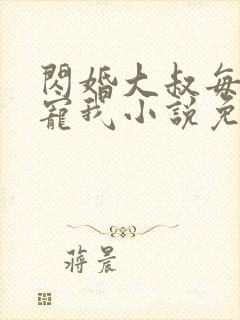 閃婚大叔每
寵我小說免
蔣晨